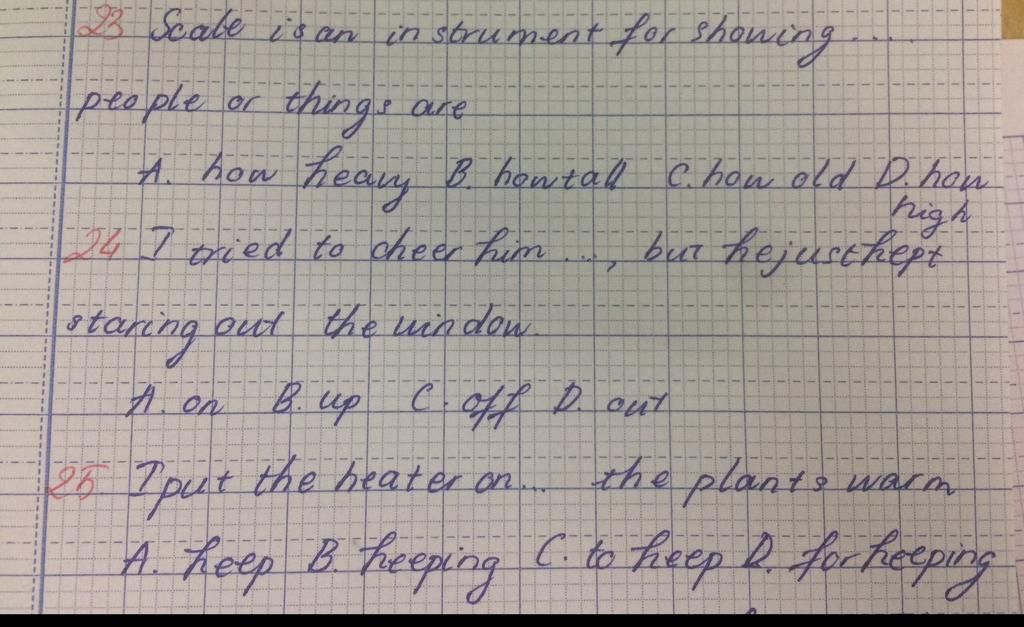 23 Scale is an instrument for showing .....
people or things are
A. how heavy B. how tall C. how old D. how
high
24 I tried to cheer him ..., but he just kept
staring out the window.
A. on B. up C. off D. out
25. I put the heater on... the plants warm
A. keep B. keeping C. to keep D. for keeping